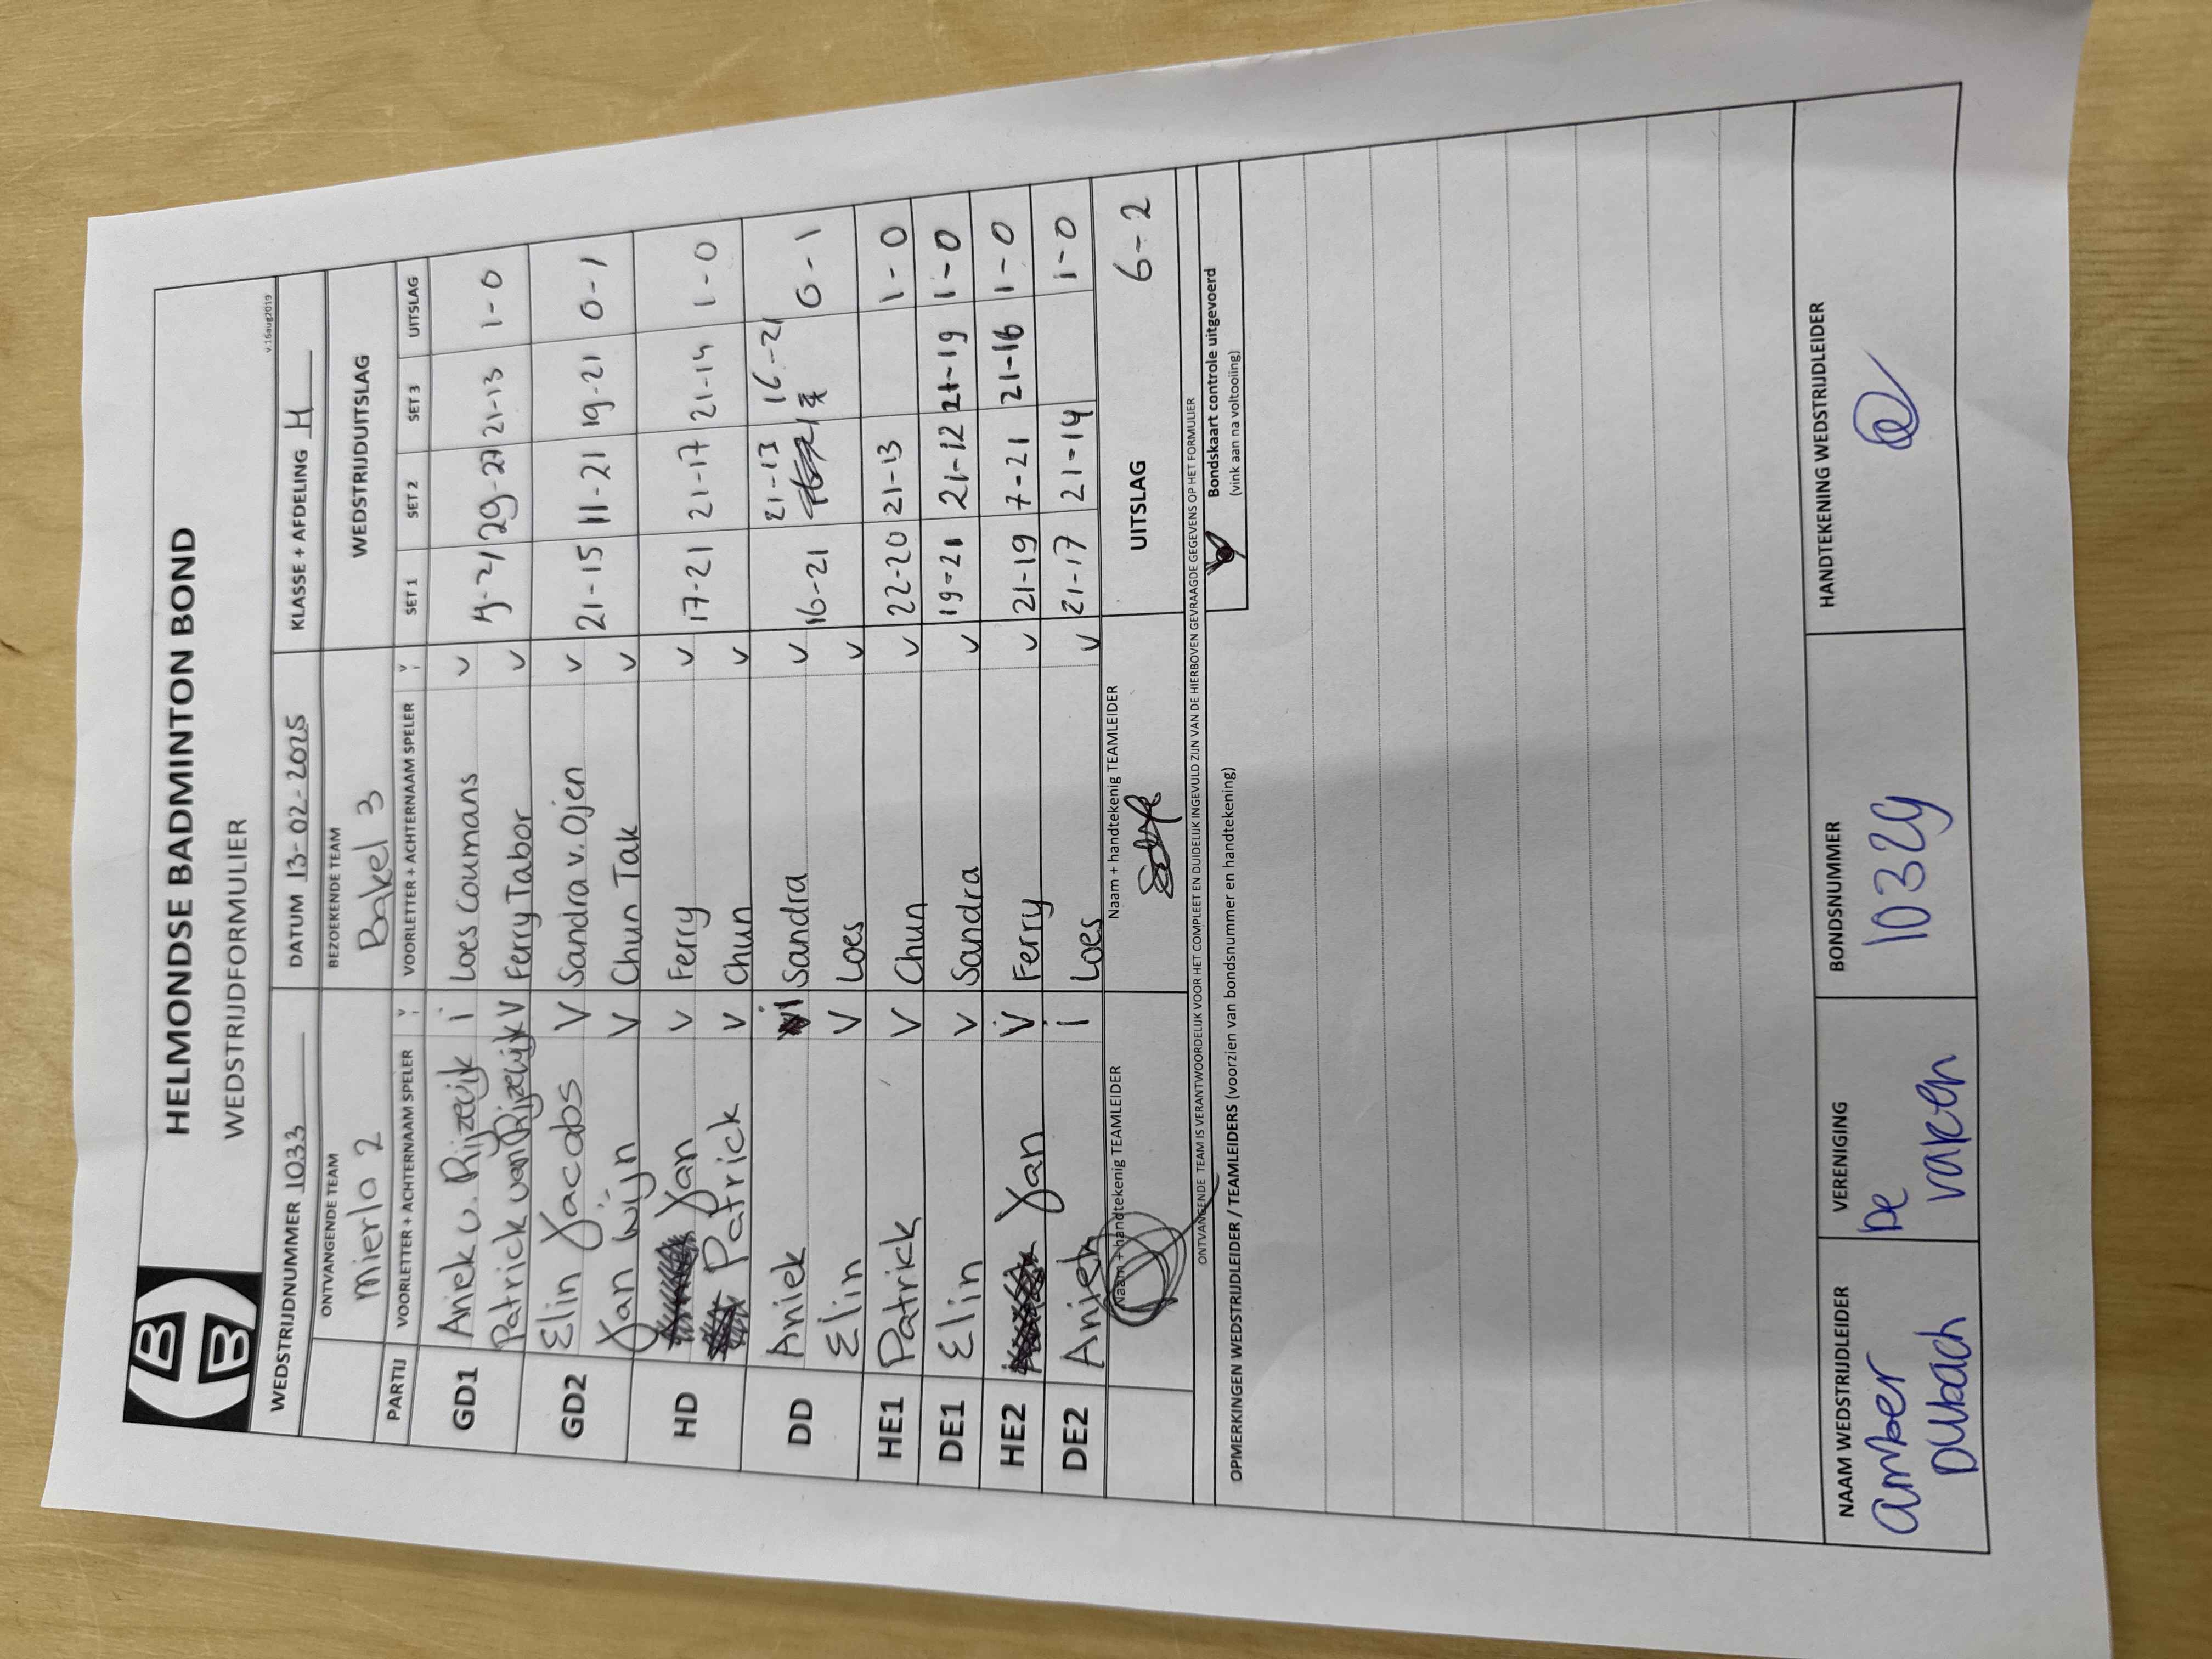 HBB
HELMONDSE BADMINTON BOND
WEDSTRIJDFORMULIER
v.16aug2019
WEDSTRIJDNUMMER 1033 DATUM 13-02-2025 KLASSE + AFDELING H
ONTVANGENDE TEAM BEZOEKENDE TEAM WEDSTRIJDUITSLAG
Mierlo 2 Bakel 3
PARTIJ VOORLETTER + ACHTERNAAM SPELER V/I VOORLETTER + ACHTERNAAM SPELER V/I SET 1 SET 2 SET 3 UITSLAG
GD1 Aniek v. Rijzewijk i Loes Coumans v 29-27 21-13 1-0
Patrick van Rijzewijk V Ferry Tabor v
GD2 Elin Jacobs V Sandra v. Ojen v 21-15 11-21 19-21 0-1
Jan Wijn V Chun Tak v
HD Jan v Ferry v 17-21 21-17 21-14 1-0
Patrick v Chun v
DD Aniek i Sandra v 16-21 21-13 16-21 0-1
Elin V Loes v
HE1 Patrick V Chun v 22-20 21-13 1-0
DE1 Elin v Sandra v 19-21 21-12 21-19 1-0
HE2 Jan V Ferry v 21-19 7-21 21-16 1-0
DE2 Aniek i Loes v 21-17 21-14 1-0
Naam + handtekenig TEAMLEIDER Naam + handtekenig TEAMLEIDER UITSLAG 6-2
ONTVANGENDE TEAM IS VERANTWOORDELIJK VOOR HET COMPLEET EN DUIDELIJK INGEVULD ZIJN VAN DE HIERBOVEN GEVRAAGDE GEGEVENS OP HET FORMULIER
OPMERKINGEN WEDSTRIJDLEIDER / TEAMLEIDERS (voorzien van bondsnummer en handtekening)
Bondskaart controle uitgevoerd
(vink aan na voltooiing)
NAAM WEDSTRIJDLEIDER VERENIGING BONDSNUMMER HANDTEKENING WEDSTRIJDLEIDER
Amber De 10329
Dubach vaken